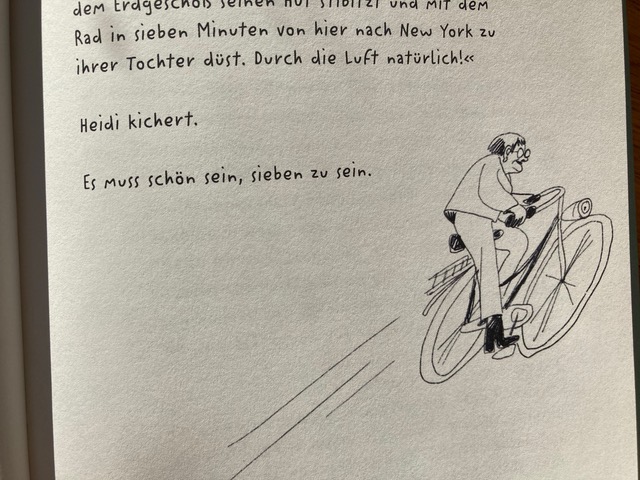 dem Erdgeschoß seinen Hut stibitzt und mit dem
Rad in sieben Minuten von hier nach New York zu
ihrer Tochter düst. Durch die Luft natürlich!«
Heidi kichert.
Es muss schön sein, sieben zu sein.